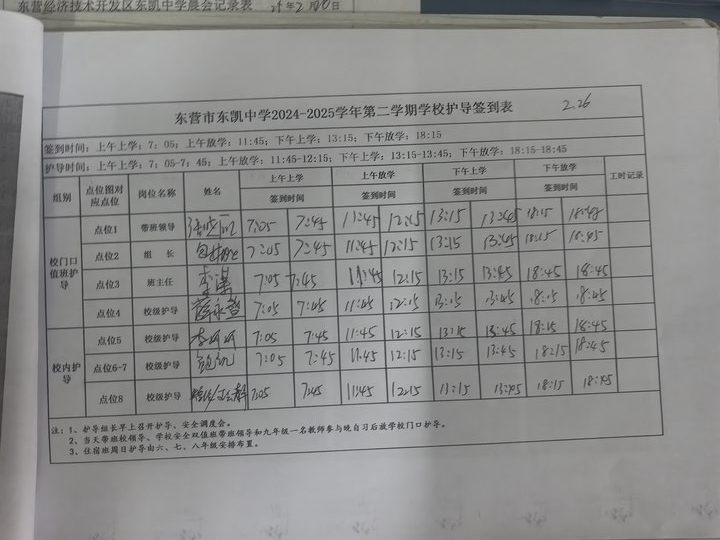 东营经济技术开发区东凯中学晨会记录表
东营市东凯中学2024-2025学年第二学期学校护导签到表 2.26
签到时间：上午上学：7：05；上午放学：11:45；下午上学：13:15；下午放学：18:15
护导时间：上午上学：7：05-7；45；上午放学：11:45-12:15；下午上学：13:15-13:45；下午放学：18:15-18:45
组别 点位图对应点位 岗位名称 姓名 上午上学 上午放学 下午上学 下午放学 工时记录
签到时间 签到时间 签到时间 签到时间
校门口值班护导 点位1 带班领导 7:05 7:45 11:45 12:15 13:15 13:45 18:15 18:45
点位2 组 长 7:05 7:45 11:45 12:15 13:15 13:45 18:15 18:45
点位3 班主任 7:05 7:45 11:45 12:15 13:15 13:45 18:45 18:45
点位4 校级护导 7:05 7:45 11:45 12:15 13:15 13:45 18:15 18:45
校内护导 点位5 校级护导 7:05 7:45 11:45 12:15 13:15 13:45 18:15 18:45
点位6-7 校级护导 7:05 7:45 11:45 12:15 13:15 13:45 18:15 18:45
点位8 校级护导 7:05 7:45 11:45 12:15 11:15 13:45 18:15 18:45
注：1、护导组长早上召开护导、安全调度会。
2、当天带班校领导、学校安全双值班带班领导和九年级一名教师参与晚自习后放学校门口护导。
3、住宿班周日护导由六、七、八年级安排布置。